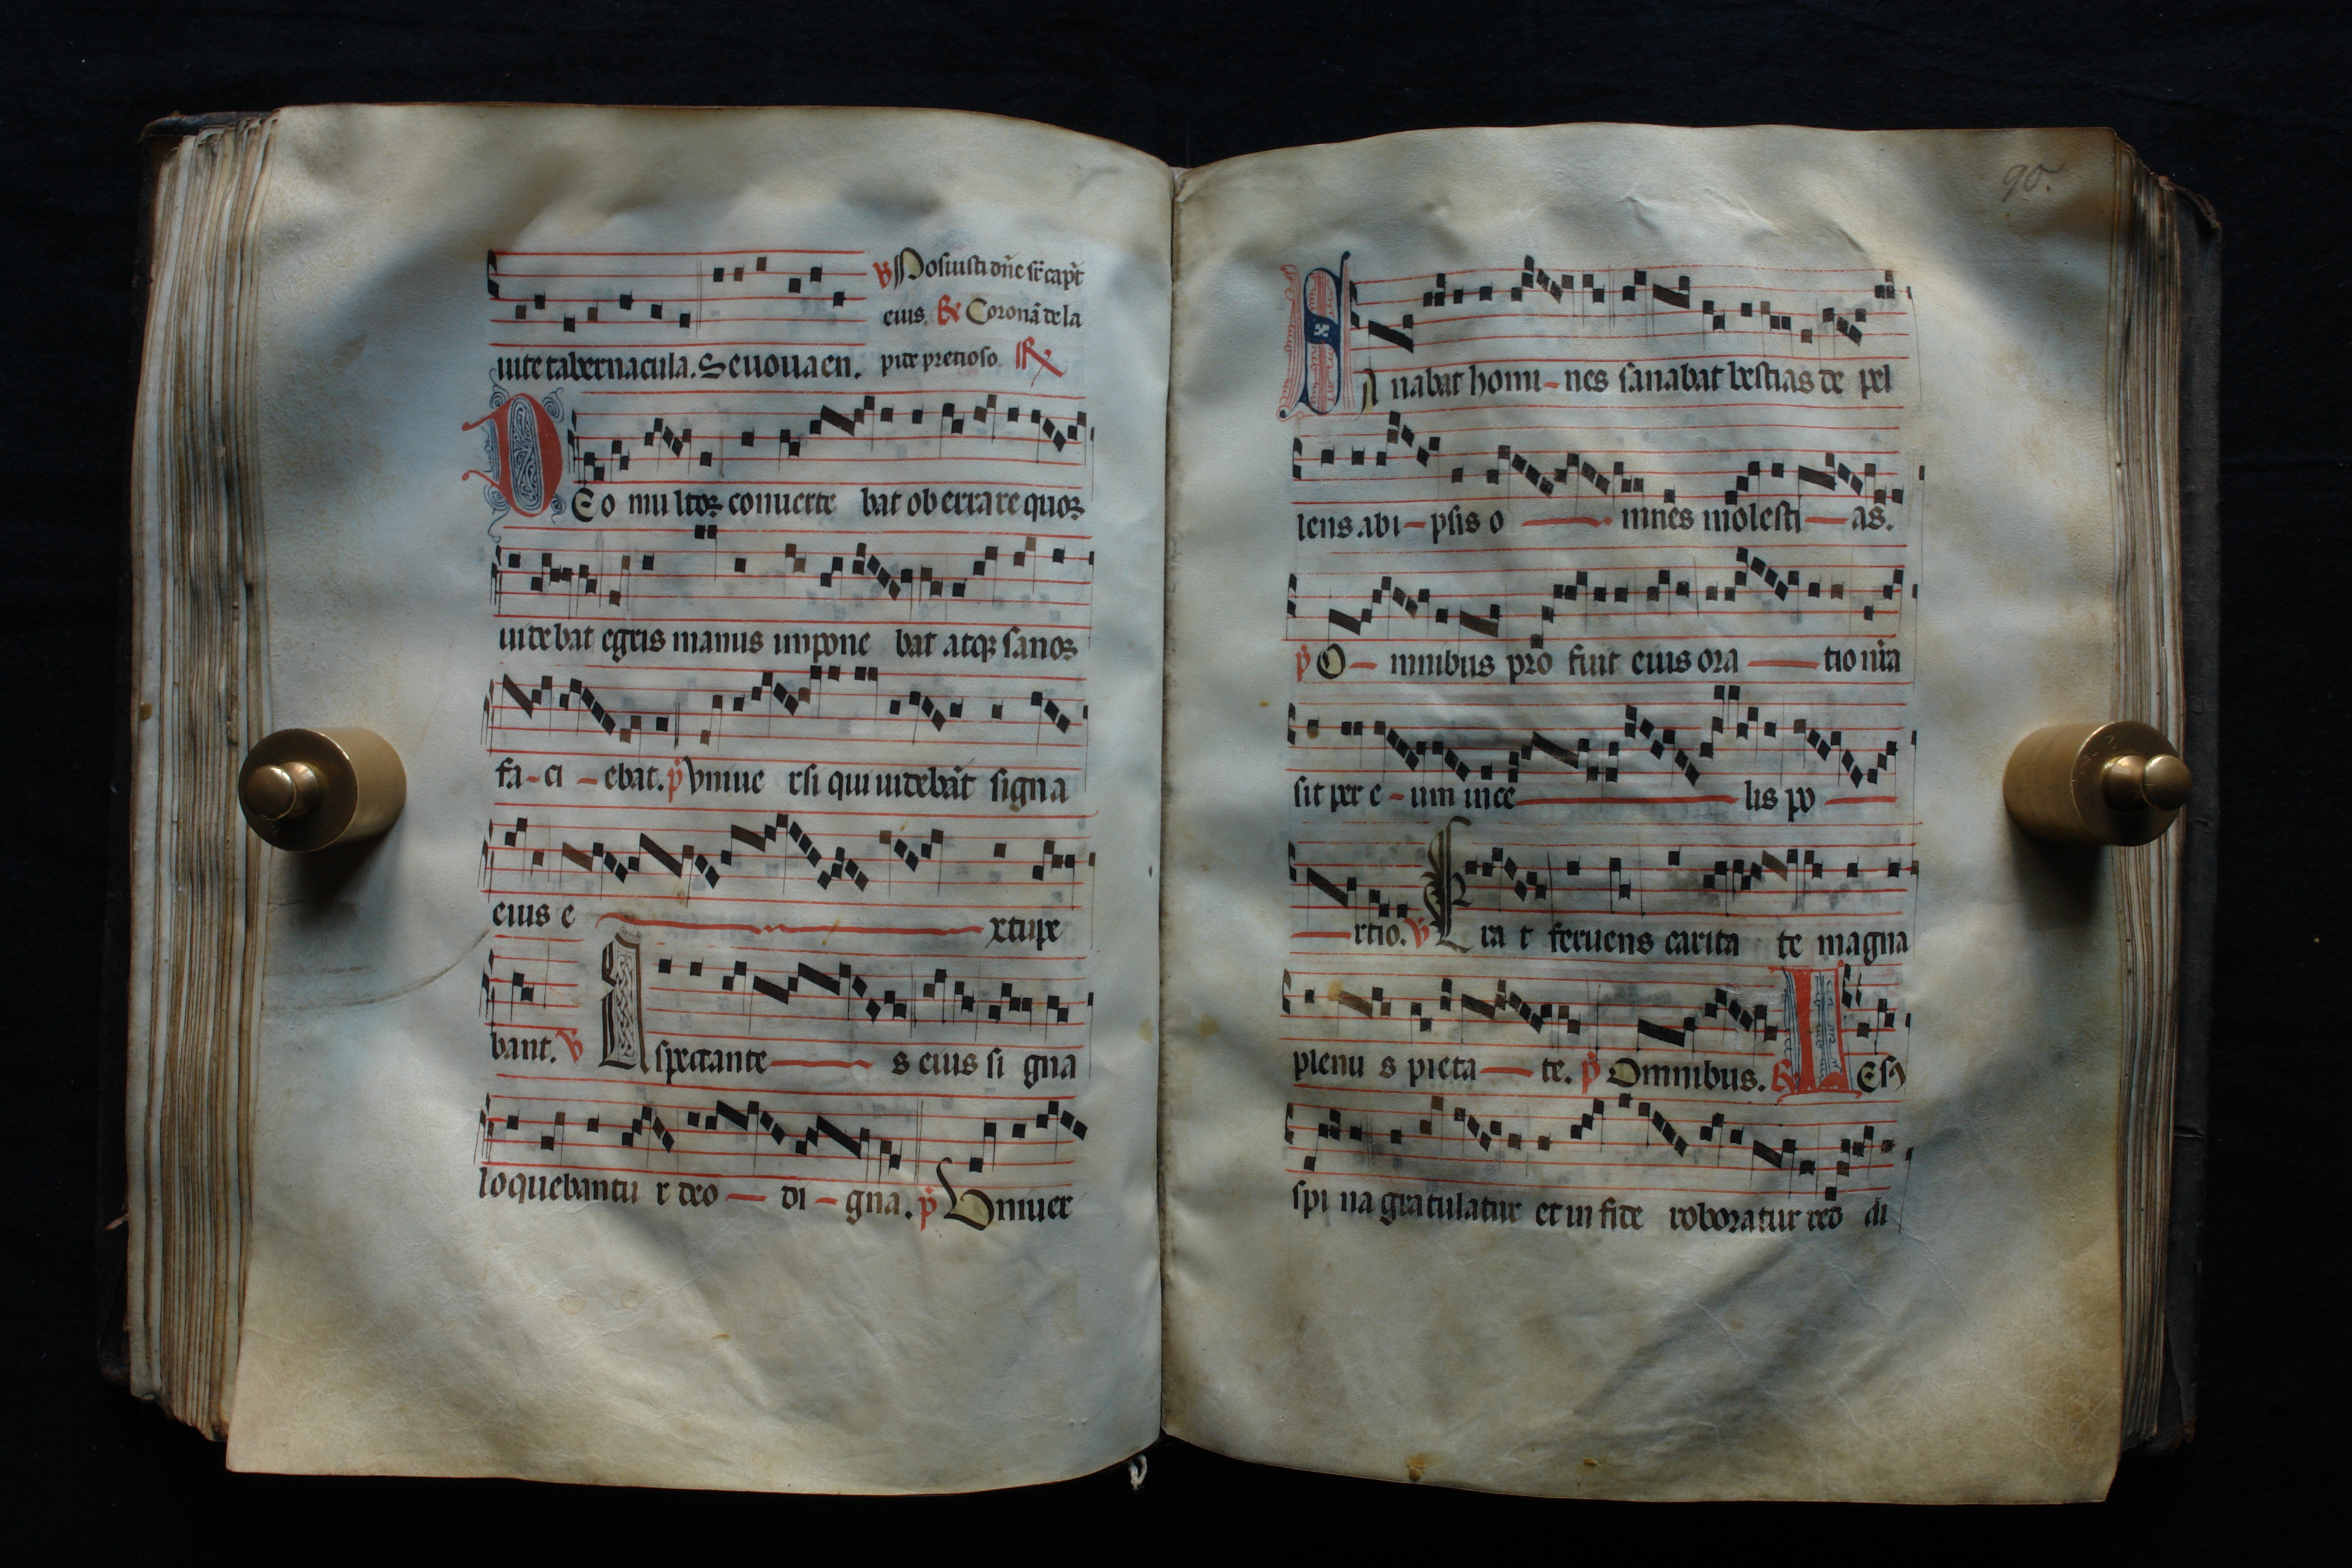 ℣ Posuisti dñe sr̃ capt̃
eius. ℟ Coronã de la
uite tabernacula. Seuouaen. pide pretioso. ℟
DEo multoꝝ conuerte bat ob errare quoꝝ
uidebat egris manus impone bat atqꝫ sanoꝝ
fa-ci-ebat. p̃ Vniue rsi qui uidebãt signa
eius e xtupe
bant. ℣ Aspectante s eius si gna
loquebantu r deo di-gna. p̃ Vniuer
90.
SA nabat homi-nes sanabat bestias de pel
lens abi-psis o mnes molesti-as.
p̃ O-mnibus pro fuit eius ora tio nĩa
sit per e-um nice lis po
rtio. ℣ Era t feruens carita te magna
plenu s pieta te. p̃ Omnibus. ℟ IEsꝯ
spi na gratulatur et in fide roboratur deo di